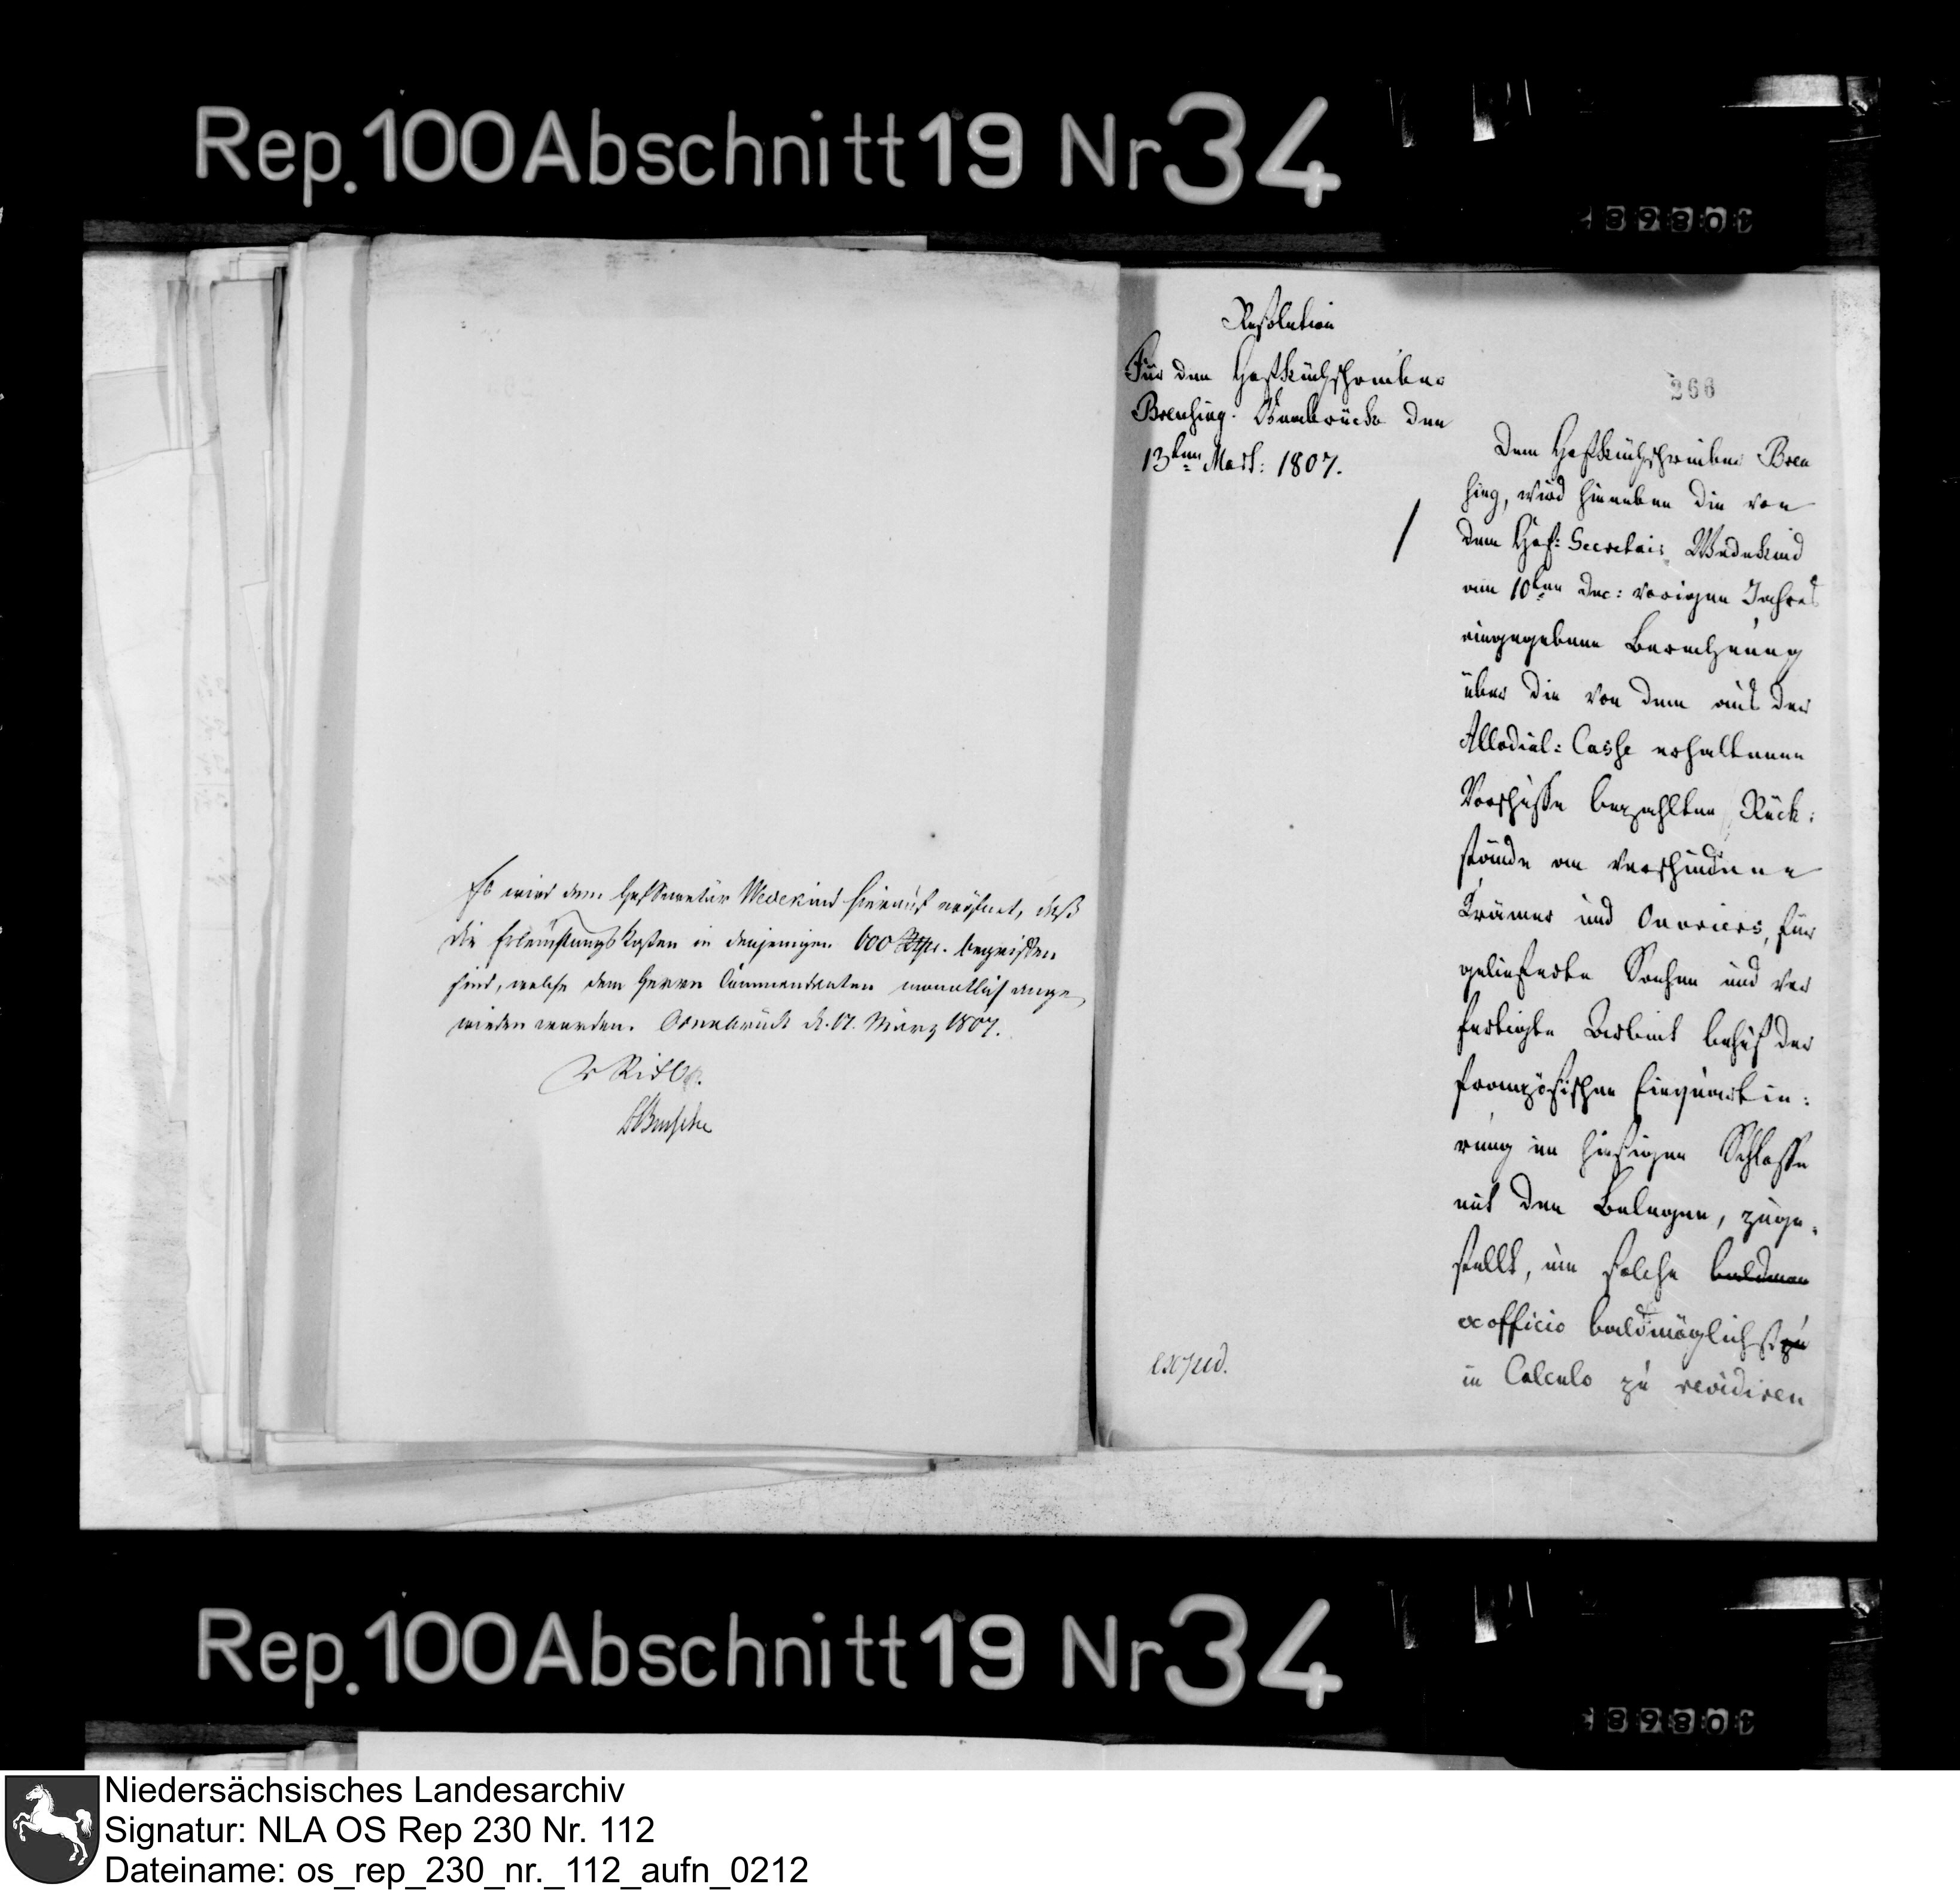 Rep. 100 Abschnitt 19 Nr 34
Es wird dem Hof Secretär Wedekind hierauf eröfnet, daß
die Erleuchtungs Kosten in denjenigen 600 Rthlr. begriffen
sind, welche dem Herrn Commendanten monatlich ange
wiesen werden. Osnabrück d. 17. März 1807.
Resolution
Für den Hofküchschreiber
Brensing. Osnabrück den
13ten Mart: 1807.
266
Dem Hofküchschreiber Bren
sing, wird hieneben die von
dem Hof: Secretair Wedekind
am 10ten Dec: vorigen Jahres
eingegebene Berechnung
über die von dem aus der
Allodial: Casse erhaltenen
Vorschusse bezahlten Rück:
stände an verschiedene
Krämer und Ouvriers, für
gelieferte Sachen und ver
fertigte Arbeit behuf der
französischen Einquartie:
rung im hiesigen Schlosse
mit den Belegen, zuge:
stellt, um solche
ex officio baldmöglichst zu
in Calculo zu revidiren
exped.
Rep. 100 Abschnitt 19 Nr 34
Niedersächsisches Landesarchiv
Signatur: NLA OS Rep 230 Nr. 112
Dateiname: os_rep_230_nr._112_aufn_0212